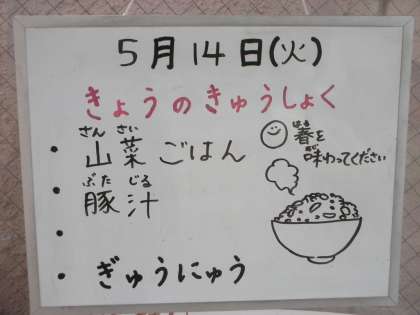 5月14日(火)
きょうのきゅうしょく
・山菜ごはん
さんさい
・豚汁
ぶたじる
・
・ぎゅうにゅう
春を
はる
味わってください
あじ